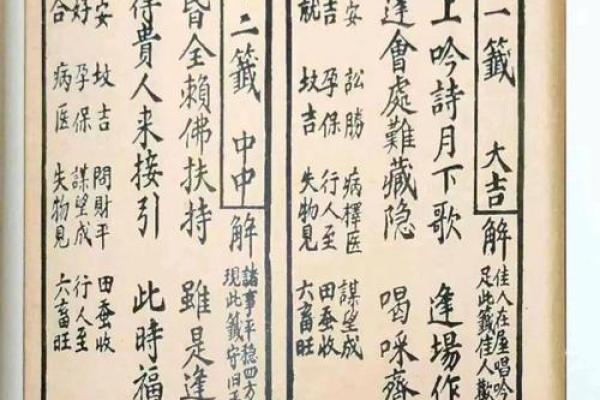 一籤 大吉 解
佳人在屋唱吟
足此籤佳人歡
上吟詩月下歌 逢場作
逢會處難藏隐 喝咪齊
安 訟勝 病擇医 謀望成
吉 孕保 行人至 田蚕收
就 坟吉 失物見 六畜旺
二籤 中中 解
諸事平稳四方
現此籤守旧
昏全賴佛扶持 雖是逢
得貴人来接引 此時福
安 坟吉 問財平 田蚕收
好 孕保 謀望成 行人至
合 病医 失物見 六畜旺